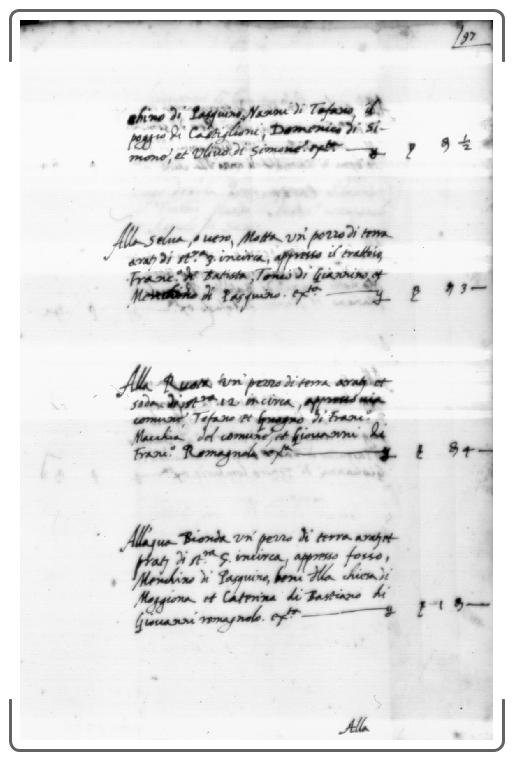 97
chino di Pasquino, Nanni di Tofano, il
poggio di Castiglioni, Domenico di Si-
mone, et Ulivo di Simone. exta
Alla Selva, o vero, Motta un' pezzo di terra
arat: di st.ra 5. incirca, appresso il
Franc.o di Batista, Tonio di Giannino, et
Menchino di Pasquino. exta 3
Alla Ruota un' pezzo di terra arat: et
soda di st.ra 12 incirca, appresso via
comune, Tofano et Gnagno di Franc.o
Macchia del comune, et Giovanni di
Franc.o Romagnolo exta 4
All'agua Bionda un' pezzo di terra arat: et
prat: di st.ra 5. incirca, appresso fosso,
Menchino di Pasquino, beni della chiesa di
Moggiona et Caterina di Bastiano di
Giovanni romagnolo. exta 1
Alla